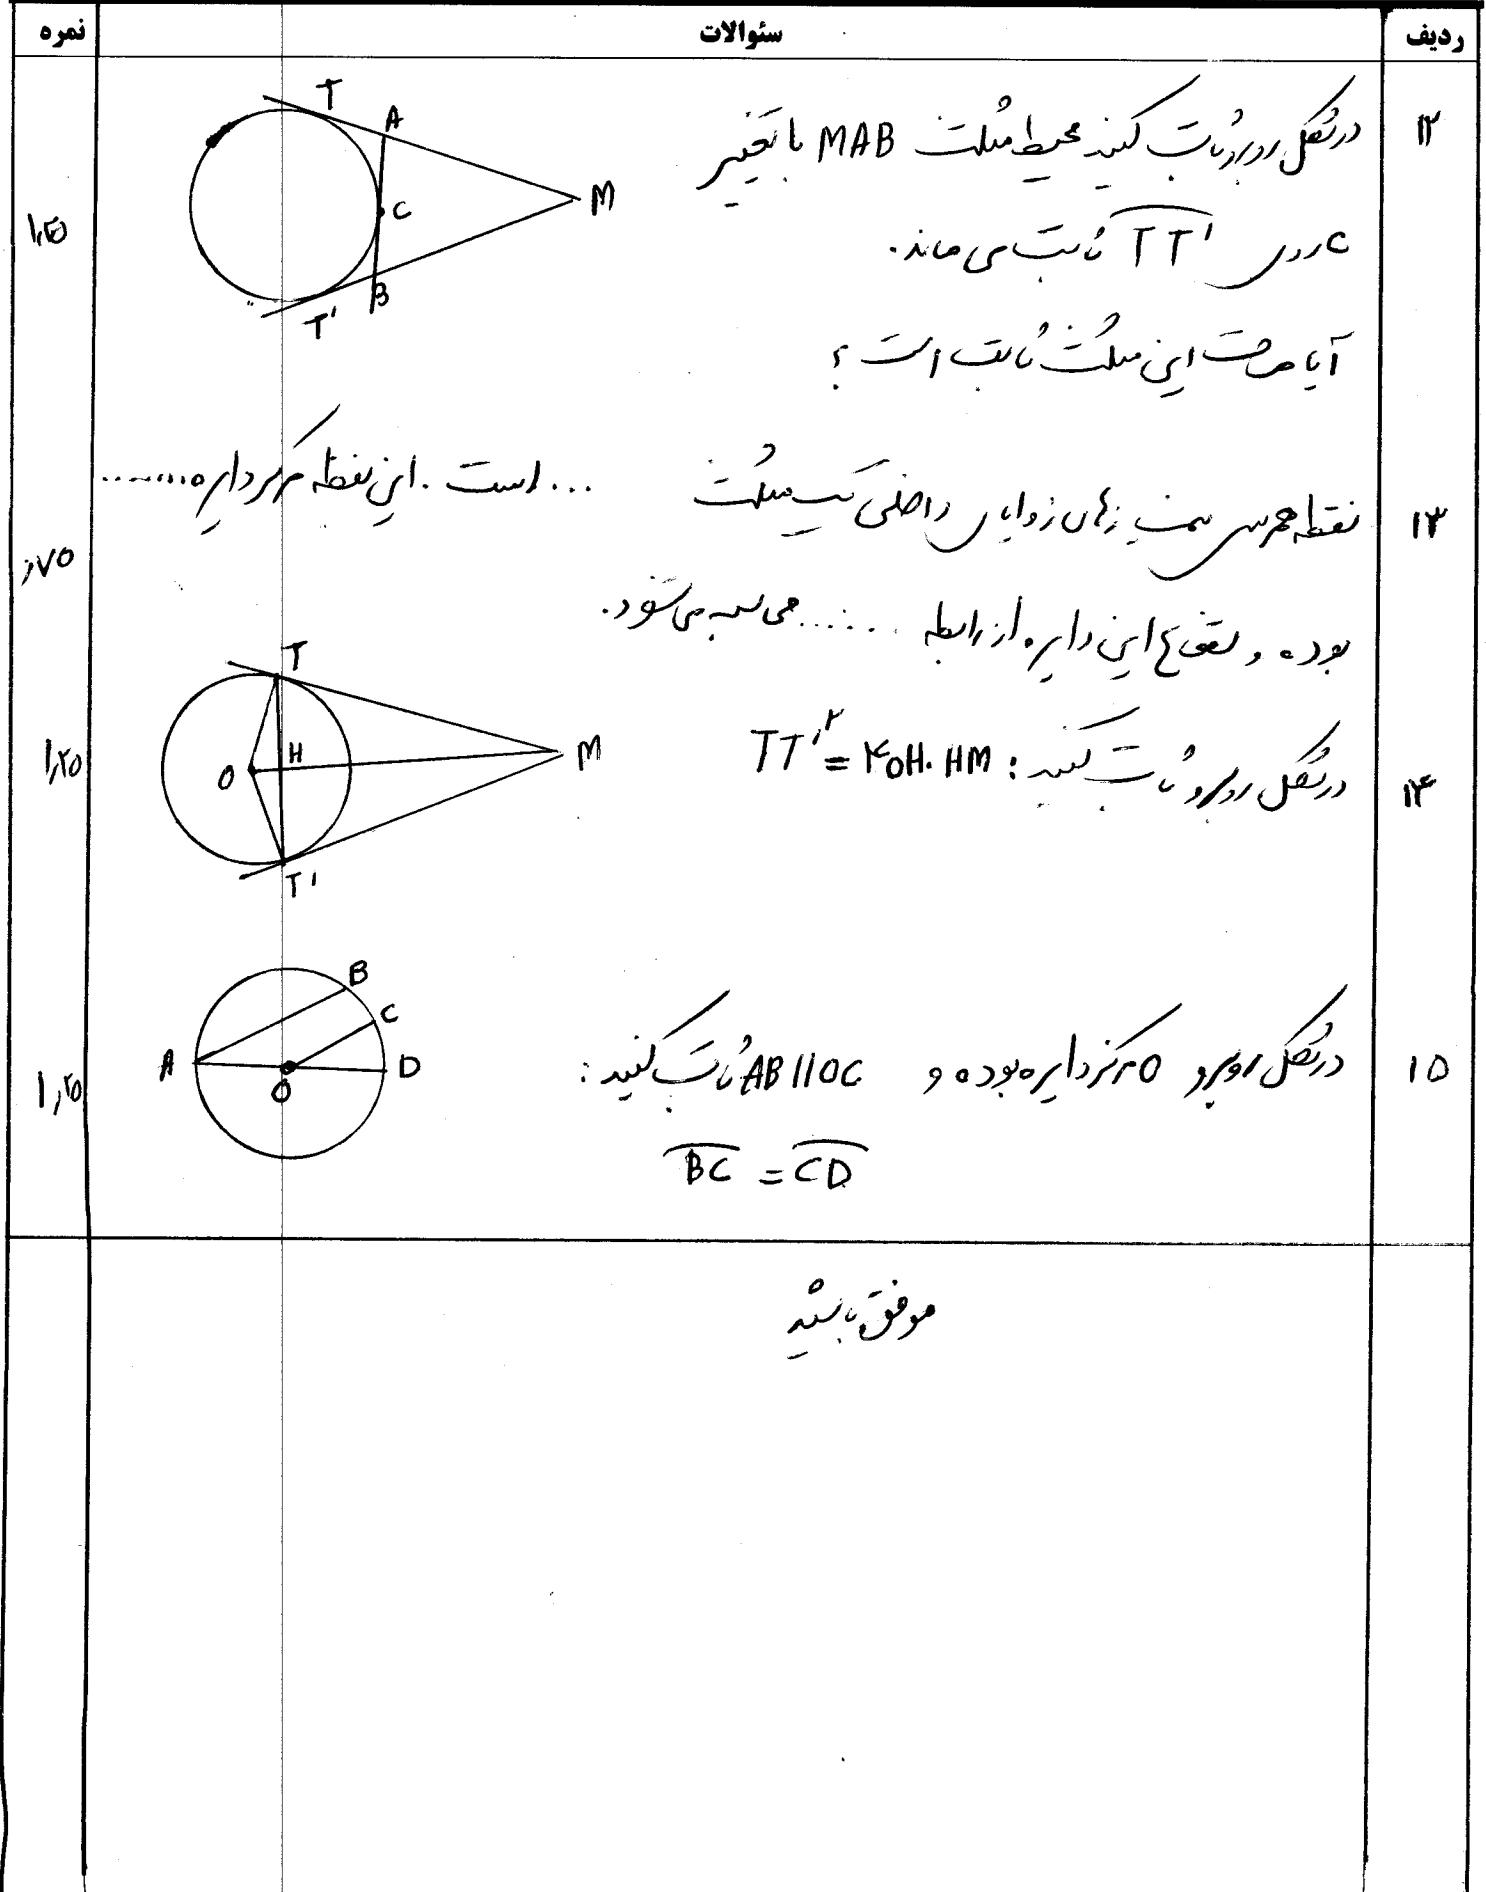 ردیف سئوالات نمره
۱۲ در شکل روبرو ثابت کنید محیط مثلث MAB با تغییر
C روی TT' ثابت می ماند.
۱,۵
آیا مساحت این مثلث ثابت است ؟
T A M C B T'
۱۳ نقطه همرسی نیمسازهای زوایای داخلی یک مثلث ... است . این نقطه مرکز دایره ........
۰,۷۵
بوده و شعاع این دایره از رابطه ...... محاسبه می شود.
۱۴ در شکل روبرو ثابت کنید : TT'² = ۴OH.HM
۱,۲۵
T H O M T'
۱۵ در شکل روبرو O مرکز دایره بوده و AB||OC ثابت کنید :
۱,۲۵
BC = CD
B C A D O
موفق باشید